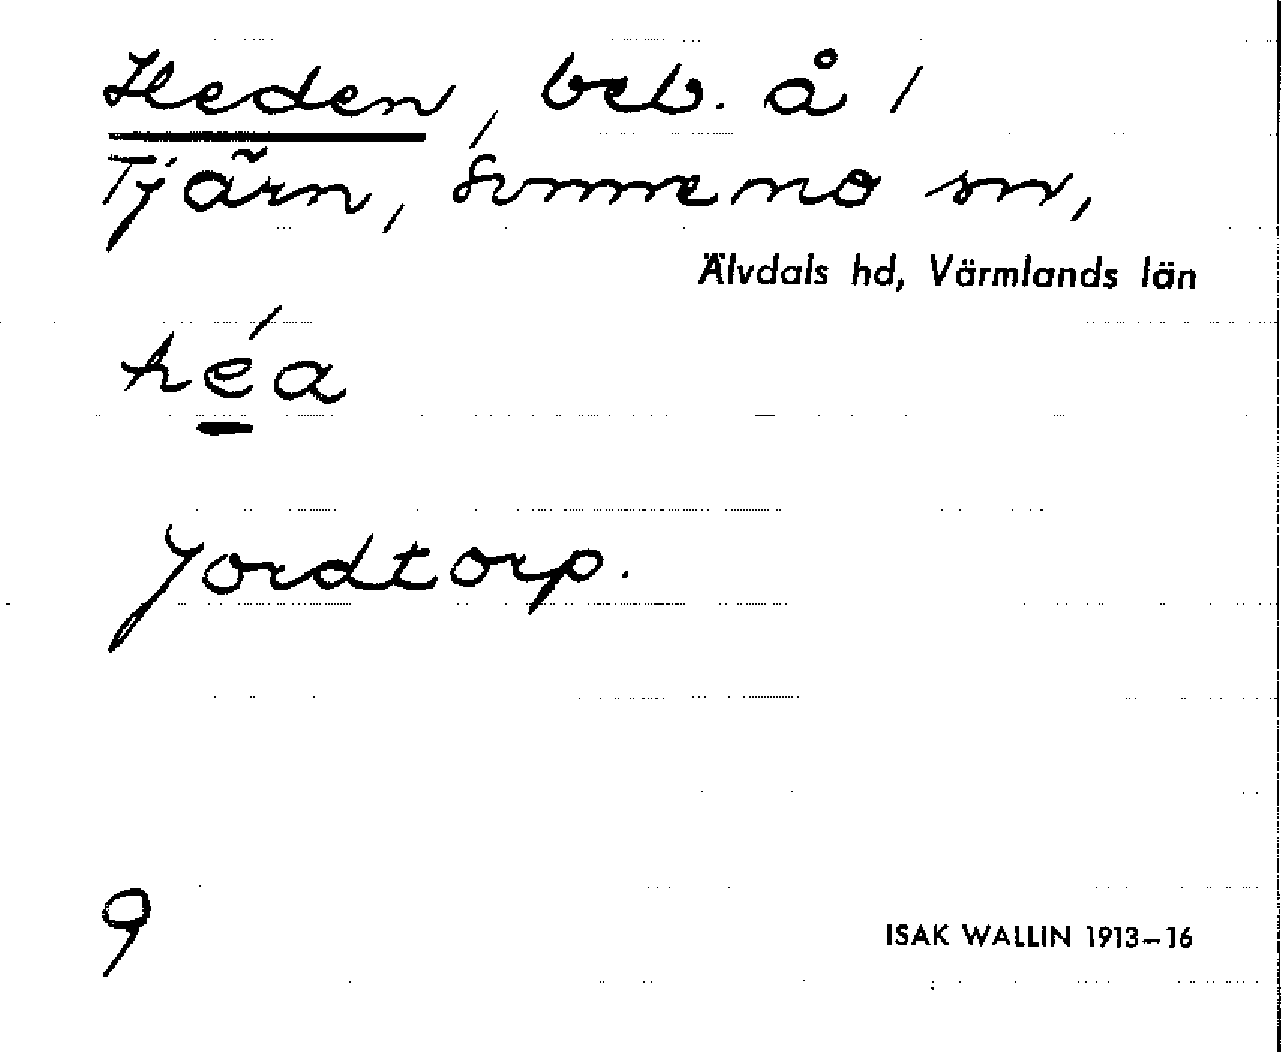 Heden, beb. å /
Tjärn, Sunnemo sn,
Älvdals hd, Värmlands län
héa
Jordtorp.
9
ISAK WALLIN 1913–16